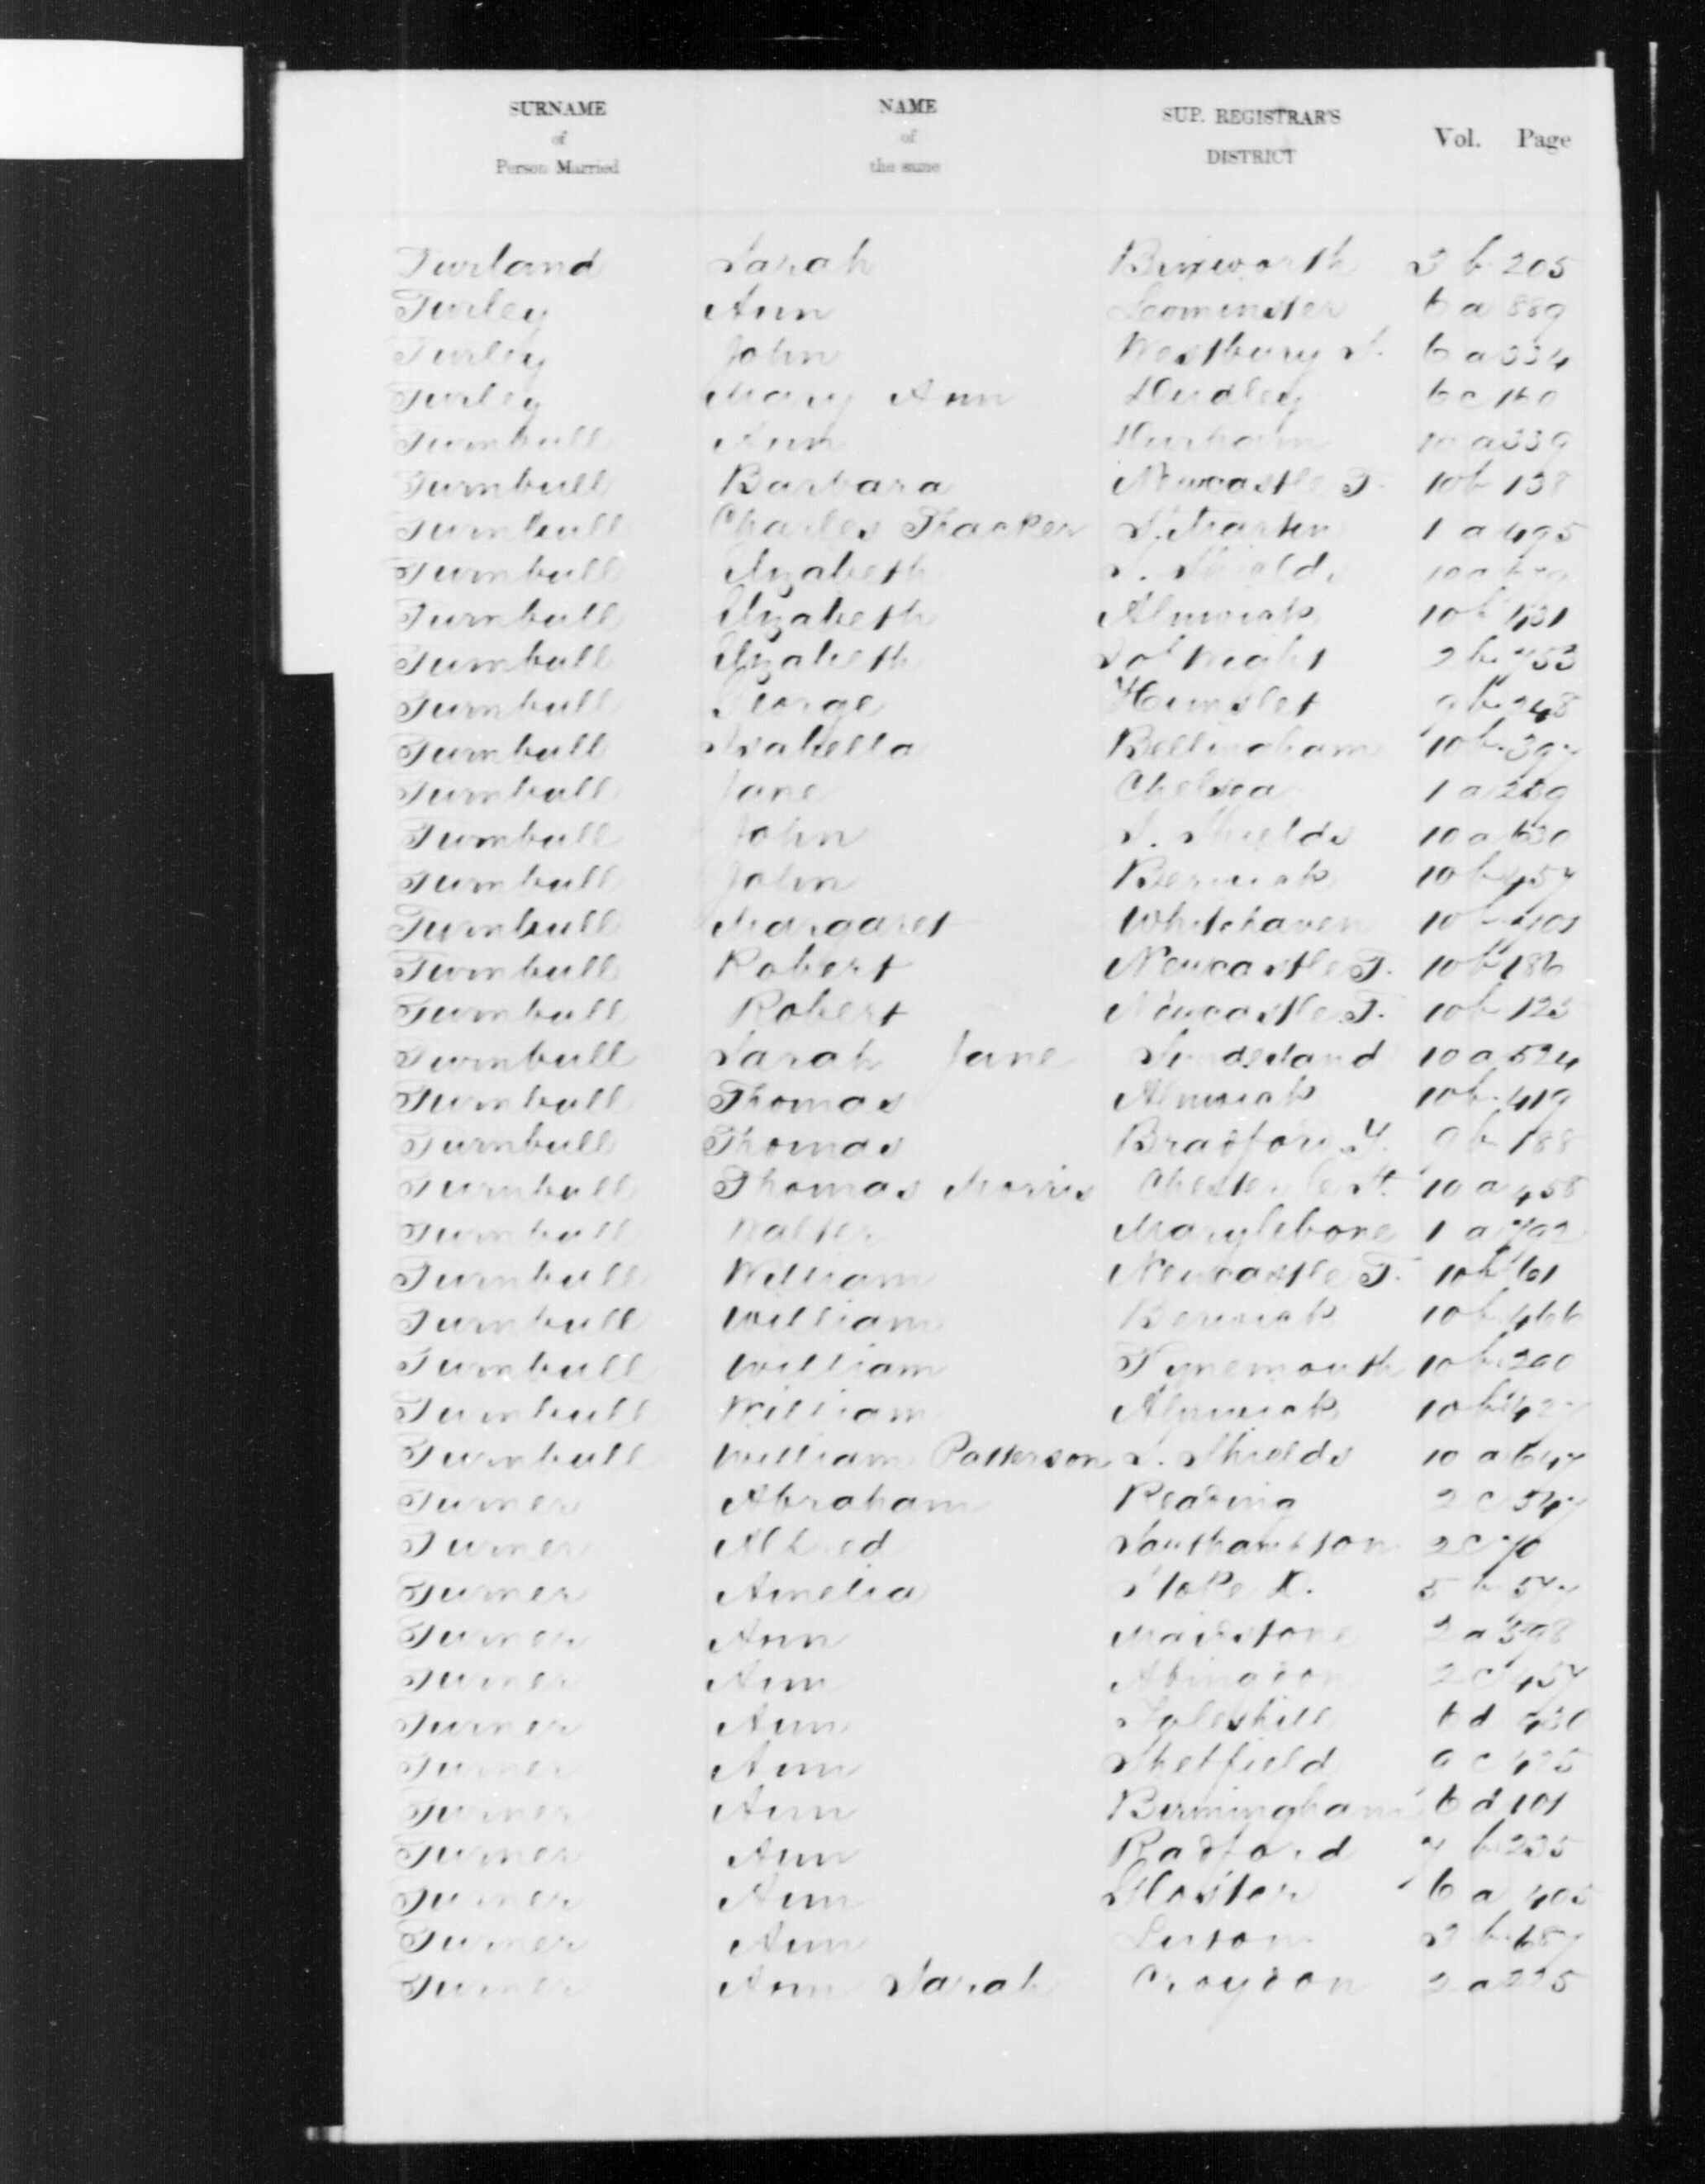 SURNAME NAME SUP. REGISTRAR'S Vol. Page
of of DISTRICT
Person Married the same
Turland Sarah Brixworth 3 b 205
Turley Ann Leominster 6 a 889
Turley John Westbury S. 6 a 334
Turley Mary Ann Dudley 6 c 160
Turnbull Ann Durham 10 a 339
Turnbull Barbara Newcastle T. 10 b 138
Turnbull Charles Thacker S. Martin 1 a 495
Turnbull Elizabeth S. Shields 10 a
Turnbull Elizabeth Alnwick 10 b 431
Turnbull Elizabeth I of Wight 2 b 753
Turnbull George Hunslet 9 b 248
Turnbull Isabella Bellingham 10 b 397
Turnbull Jane Chelsea 1 a
Turnbull John S. Shields 10 a 630
Turnbull John Berwick 10 b 457
Turnbull Margaret Whitehaven 10 b
Turnbull Robert Newcastle T. 10 b 186
Turnbull Robert Newcastle T. 10 b 123
Turnbull Sarah Jane Sunderland 10 a 524
Turnbull Thomas Alnwick 10 b 419
Turnbull Thomas Bradford Y. 9 b 188
Turnbull Thomas Morris Chester le St. 10 a 458
Turnbull Walter Marylebone 1 a 792
Turnbull William Newcastle T. 10 b 161
Turnbull William Berwick 10 b 466
Turnbull William Tynemouth 10 b 200
Turnbull William Alnwick 10 b 427
Turnbull William Patterson S. Shields 10 a 647
Turner Abraham Reading 2 c 547
Turner Alfred Southampton 2 c 70
Turner Amelia Stoke D. 5 b
Turner Ann Maidstone 2 a 598
Turner Ann Abingdon 2 c 457
Turner Ann Foleshill 6 d
Turner Ann Sheffield 9 c 425
Turner Ann Birmingham 6 d 101
Turner Ann Radford 7 b 235
Turner Ann Gloster 6 a
Turner Ann Luton 3 b 687
Turner Ann Sarah Croydon 2 a 225